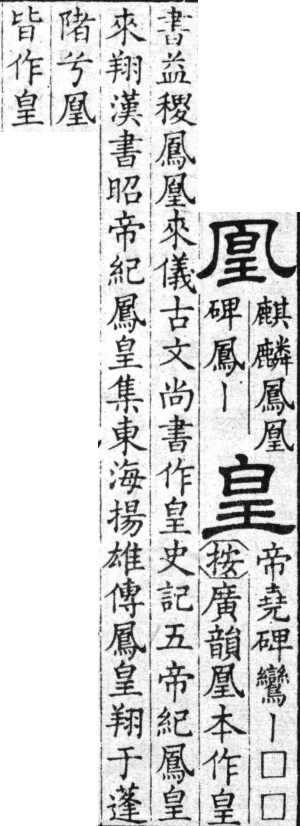 凰
麒麟鳳凰
碑鳳丨
皇
帝堯碑鸞丨□□
按廣韻凰本作皇
書益稷鳳凰來儀古文尚書作皇史記五帝紀鳳皇
來翔漢書昭帝紀鳳皇集東海揚雄傳鳳皇翔于蓬
陼兮凰
皆作皇